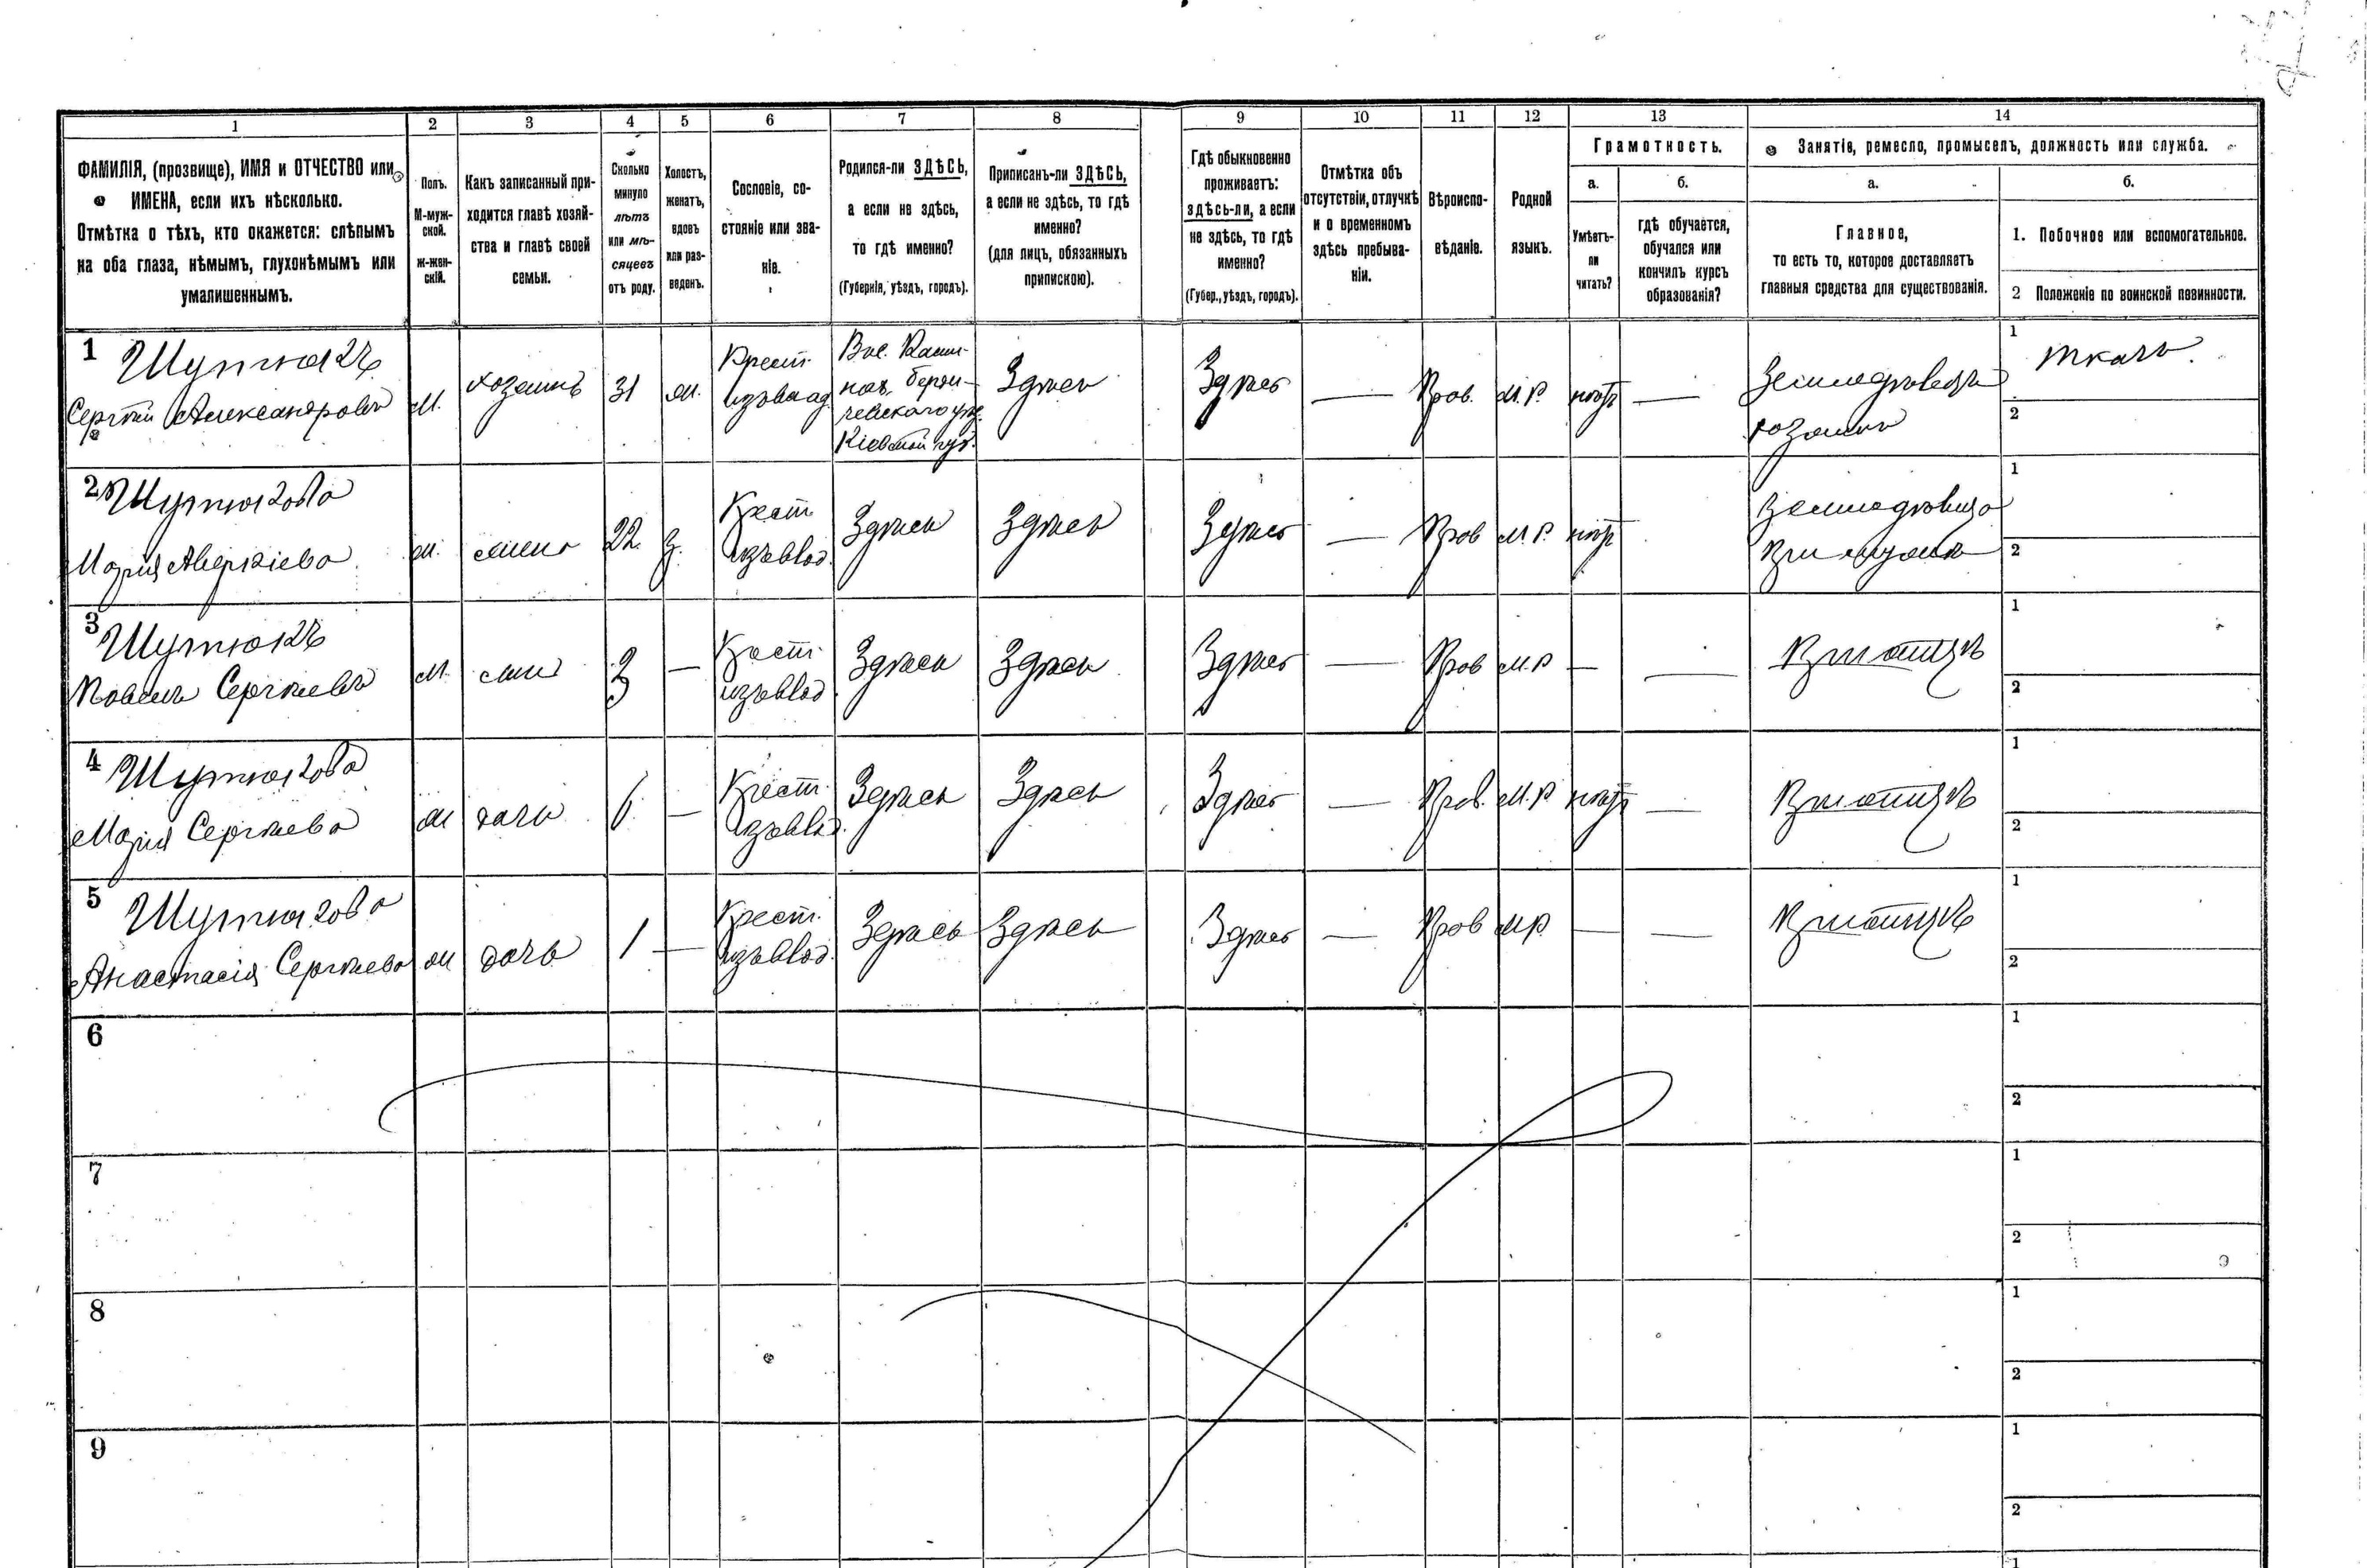 1 2 3 4 5 6 7 8 9 10 11 12 13 14
ФАМИЛІЯ, (прозвище), ИМЯ и ОТЧЕСТВО или
ИМЕНА, если ихъ нѣсколько.
Отмѣтка о тѣхъ, кто окажется: слѣпымъ
на оба глаза, нѣмымъ, глухонѣмымъ или
умалишеннымъ.
Полъ.
М-муж-
ской.
ж-жен-
скій.
Какъ записанный при-
ходится главѣ хозяй-
ства и главѣ своей
семьи.
Сколько
минуло
лѣтъ
или мѣ-
сяцевъ
отъ роду.
Холостъ,
женатъ,
вдовъ
или раз-
веденъ.
Сословіе, со-
стояніе или зва-
ніе.
Родился-ли ЗДѢСЬ,
а если не здѣсь,
то гдѣ именно?
(Губернія, уѣздъ, городъ).
Приписанъ-ли ЗДѢСЬ,
а если не здѣсь, то гдѣ
именно?
(для лицъ, обязанныхъ
припискою).
Гдѣ обыкновенно
проживаетъ:
здѣсь-ли, а если
не здѣсь, то гдѣ
именно?
(Губер., уѣздъ, городъ).
Отмѣтка объ
отсутствіи, отлучкѣ
и о временномъ
здѣсь пребыва-
ніи.
Вѣроиспо-
вѣданіе.
Родной
языкъ.
Грамотность.
а.
Умѣетъ-
ли
читать?
б.
гдѣ обучается,
обучался или
кончилъ курсъ
образованія?
Занятіе, ремесло, промыселъ, должность или служба.
а.
Главное,
то есть то, которое доставляетъ
главныя средства для существованія.
б.
1. Побочное или вспомогательное.
2 Положеніе по воинской повинности.
1
Сергѣй Александровъ
М.
хозяинъ
31
Крест.
Кіевской губ.
Здѣсь
Здѣсь
Прав.
М.Р.
нѣтъ
хозяинъ
1 ткачъ.
2
2
Марія Аверкіева
жена
22.
З.
Крест.
Здѣсь
Здѣсь
Здѣсь
Прав
М.Р.
нѣтъ
При мужѣ
1
2
3
Павелъ Сергѣевъ
М.
сынъ
3
Крест.
Здѣсь
Здѣсь
Здѣсь
Прав
М.Р
При отцѣ
1
2
4
Марія Сергѣева
дочь
6
Крест.
Здѣсь
Здѣсь
Здѣсь
Прав.
М.Р
нѣтъ
При отцѣ
1
2
5
Анастасія Сергѣева
дочь
1
Крест.
Здѣсь
Здѣсь
Здѣсь
Прав
МР.
При отцѣ
1
2
6
1
2
7
1
2
8
1
2
9
1
2
1